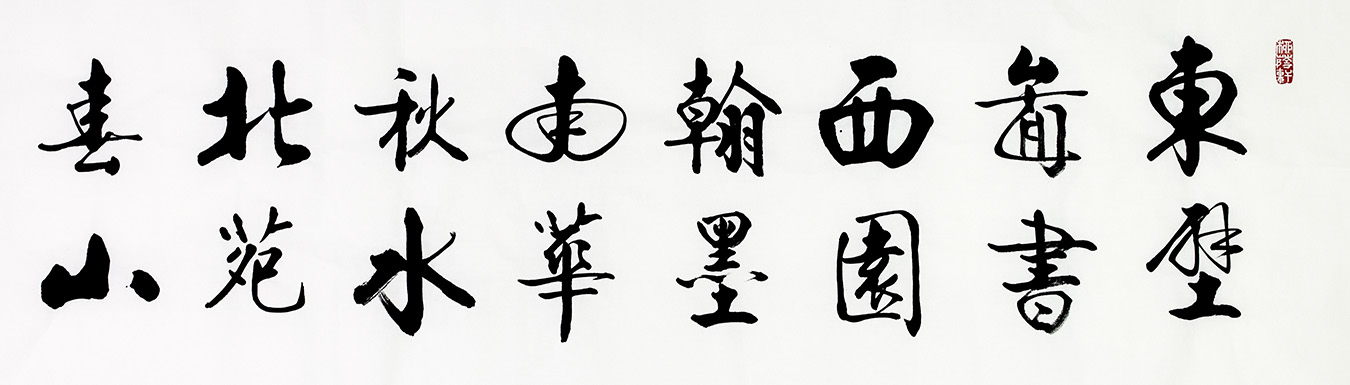 東壁
圖書
西園
翰墨
南華
秋水
北苑
春山